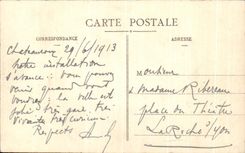 CARTE POSTALE
CORRESPONDANCE
ADRESSE
Chateauroux 29/6/1913
notre installation
avance : vous pouvez
venir quand vous
voudrez : la ville est
jolie très gaie très
vivante très
Respects
Monsieur
& Madame Ribereau
place du Théâtre
La Roche s/Yon